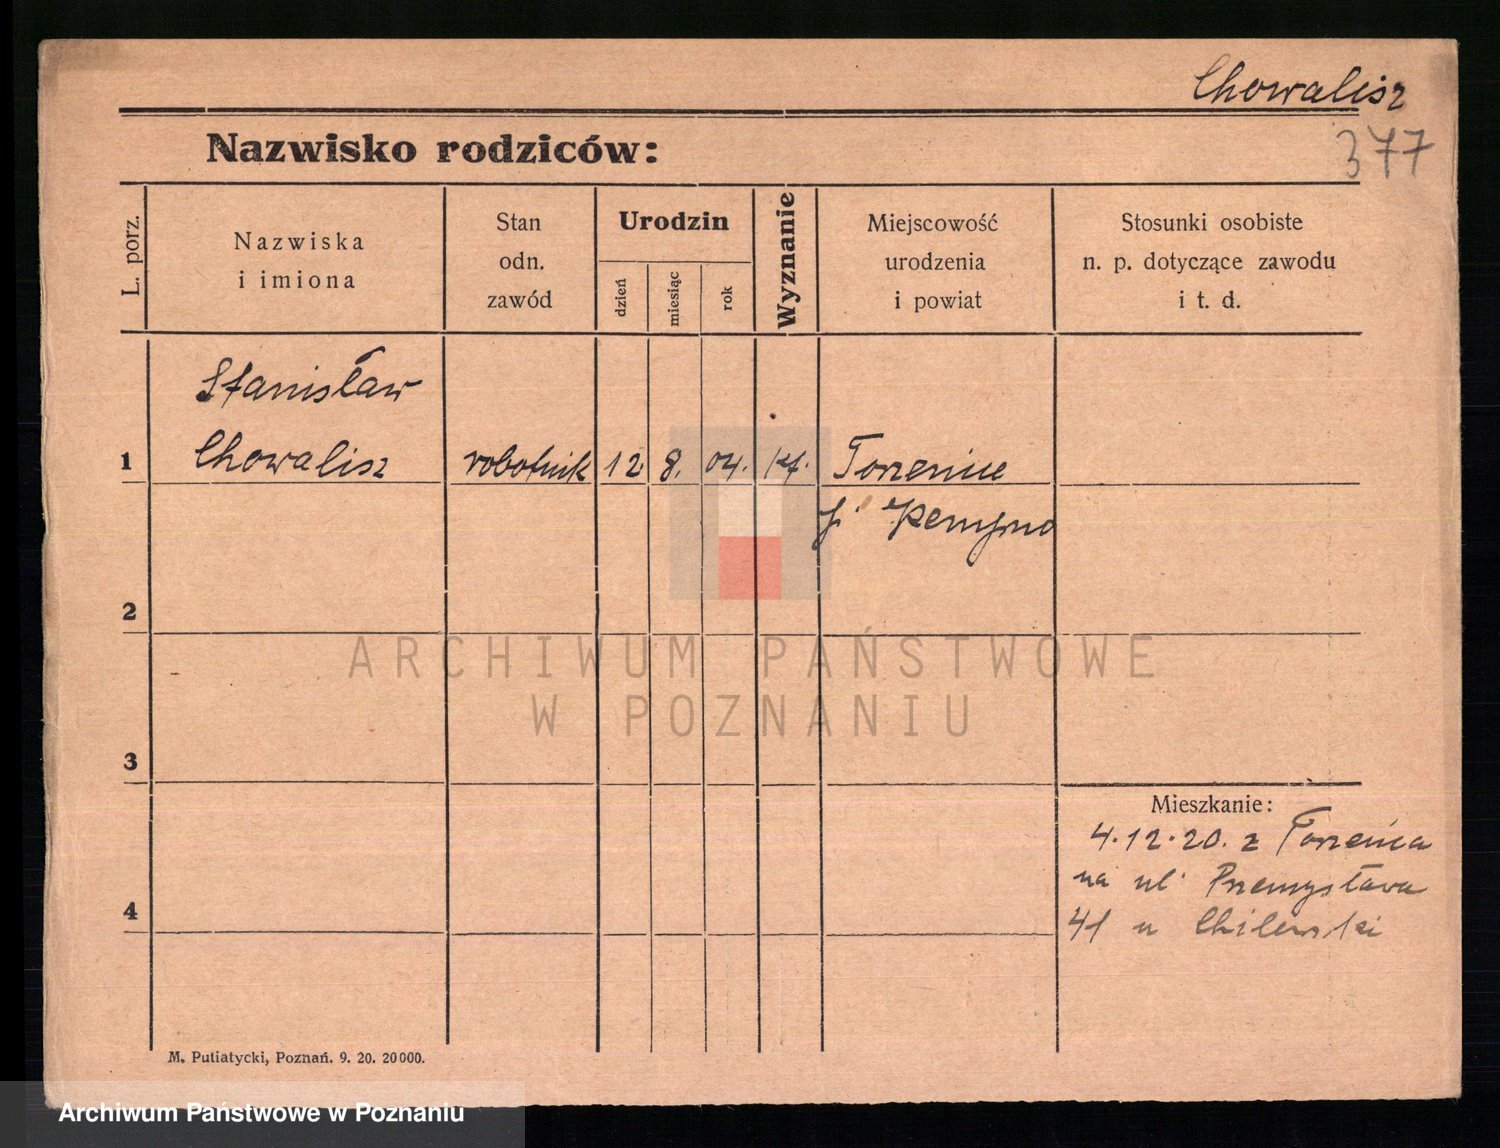 Chowalisz
377
Nazwisko rodziców:
L. porz.
Nazwiska
i imiona
Stan
odn.
zawód
Urodzin
dzień
miesiąc
rok
Wyznanie
Miejscowość
urodzenia
i powiat
Stosunki osobiste
n. p. dotyczące zawodu
i t. d.
Stanisław
1 Chowalisz robotnik 12. 8. 04. kt.
2
ARCHIWUM PAŃSTWOWE
W POZNANIU
3
Mieszkanie:
4.12.20. z
na ul Przemysława
41 u Chilewski
4
M. Putiatycki, Poznań. 9. 20. 20000.
Archiwum Państwowe w Poznaniu